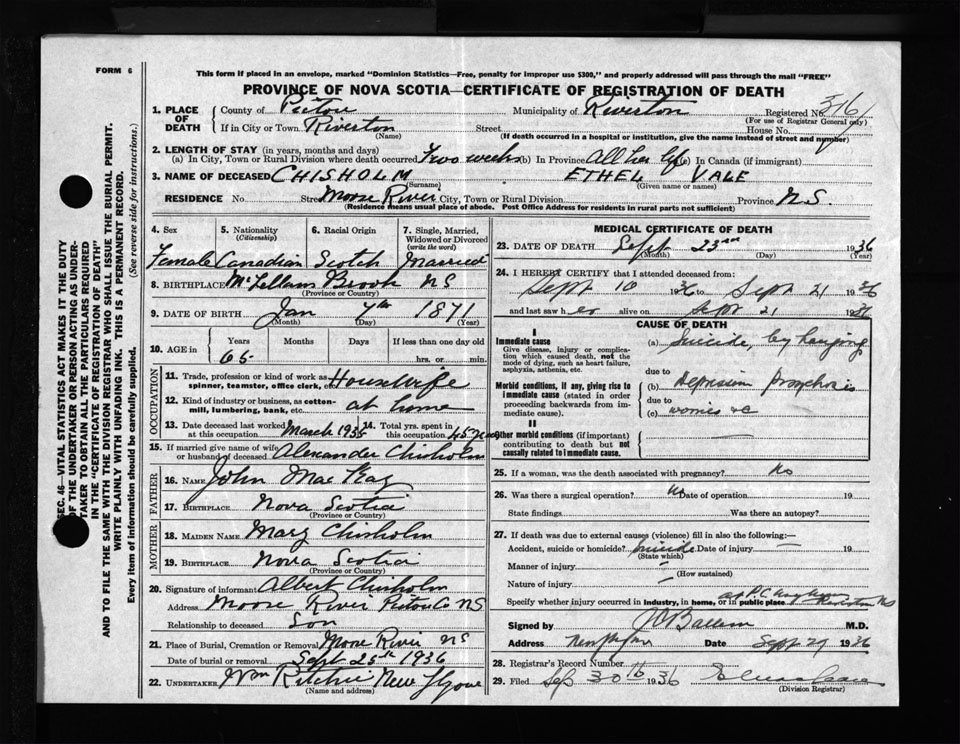 FORM 6
This form if placed in an envelope, marked "Dominion Statistics—Free, penalty for improper use $300," and properly addressed will pass through the mail "FREE"
PROVINCE OF NOVA SCOTIA—CERTIFICATE OF REGISTRATION OF DEATH
1. PLACE OF DEATH County of Pictou Municipality of Riverton Registered No.
(For use of Registrar General only)
If in City or Town Riverton Street House No.
(Name) (If death occurred in a hospital or institution, give the name instead of street and number)
2. LENGTH OF STAY (in years, months and days)
(a) In City, Town or Rural Division where death occurred Two weeks (b) In Province All her life (c) In Canada (if immigrant)
3. NAME OF DECEASED CHISHOLM ETHEL VALE
(Surname) (Given name or names)
RESIDENCE No. Street Moose River City, Town or Rural Division Province N.S.
(Residence means usual place of abode. Post Office Address for residents in rural parts not sufficient)
4. Sex 5. Nationality (Citizenship) 6. Racial Origin 7. Single, Married, Widowed or Divorced (write the word)
Female Canadian Scotch Married
8. BIRTHPLACE McLellans Brook NS
(Province or Country)
9. DATE OF BIRTH Jan 7th 1871
(Month) (Day) (Year)
10. AGE in Years Months Days If less than one day old
65 hrs. or min.
OCCUPATION
11. Trade, profession or kind of work as spinner, teamster, office clerk, etc. Housewife
12. Kind of industry or business, as cotton-mill, lumbering, bank, etc. at home
13. Date deceased last worked at this occupation March 1935 14. Total yrs. spent in this occupation 45 years
15. If married give name of wife or husband of deceased Alexander Chisholm
FATHER
16. NAME John MacKay
17. BIRTHPLACE Nova Scotia
(Province or Country)
MOTHER
18. MAIDEN NAME Mary Chisholm
19. BIRTHPLACE Nova Scotia
(Province or Country)
20. Signature of informant Albert Chisholm
Address Moose River Pictou Co NS
Relationship to deceased Son
21. Place of Burial, Cremation or Removal Moose River NS
Date of burial or removal Sept 25th 1936
22. UNDERTAKER Wm Ritchie New Glasgow
(Name and address)
MEDICAL CERTIFICATE OF DEATH
23. DATE OF DEATH Sept 23rd 1936
(Month) (Day) (Year)
24. I HEREBY CERTIFY that I attended deceased from:
Sept 10 1936 to Sept 21 1936
and last saw her alive on Sept 21 1936
CAUSE OF DEATH
I
Immediate cause
Give disease, injury or complication which caused death, not the mode of dying, such as heart failure, asphyxia, asthenia, etc.
(a) Suicide, by hanging
due to
Morbid conditions, if any, giving rise to immediate cause (stated in order proceeding backwards from immediate cause).
(b) Depression psychosis
due to
(c) worries &c
II
Other morbid conditions (if important) contributing to death but not causally related to immediate cause.
25. If a woman, was the death associated with pregnancy? No
26. Was there a surgical operation? No Date of operation 19
State findings Was there an autopsy?
27. If death was due to external causes (violence) fill in also the following:—
Accident, suicide or homicide? suicide Date of injury 19
(State which)
Manner of injury
(How sustained)
Nature of injury
Specify whether injury occurred in industry, in home, or in public place Riverton NS
Signed by M.D.
Address Date Sept 29 1936
28. Registrar's Record Number
29. Filed Sep 30th 1936
(Division Registrar)
SEC. 46 — VITAL STATISTICS ACT MAKES IT THE DUTY
OF THE UNDERTAKER OR PERSON ACTING AS UNDER-
TAKER TO OBTAIN ALL THE PARTICULARS REQUIRED
IN THE "CERTIFICATE OF REGISTRATION OF DEATH"
AND TO FILE THE SAME WITH THE DIVISION REGISTRAR WHO SHALL ISSUE THE BURIAL PERMIT.
WRITE PLAINLY WITH UNFADING INK. THIS IS A PERMANENT RECORD.
Every item of information should be carefully supplied. (See reverse side for instructions.)